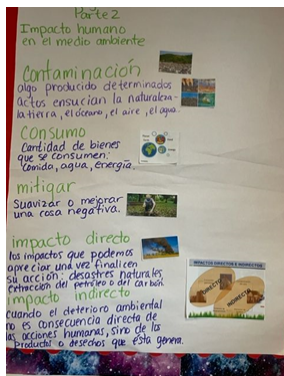 Parte 2
Impacto humano
en el medio ambiente
Contaminación
algo producido determinados
actos ensucian la naturaleza-
la tierra, el oceano, el aire, el agua.
Consumo
Cantidad de bienes
que se consumen:
Comida, agua, energía.
mitigar
Suavizar o mejorar
una cosa negativa.
impacto directo
los impactos que podemos
apreciar una vez finalicen
su acción: desastres naturales
extracción del petróleo o del carbón.
impacto indirecto
cuando el deterioro ambiental
no es consecuencia directa de
las acciones humanas, sino de los
productos o desechos que esta genera.
IMPACTOS DIRECTOS E INDIRECTOS
DIRECTO
INDIRECTO